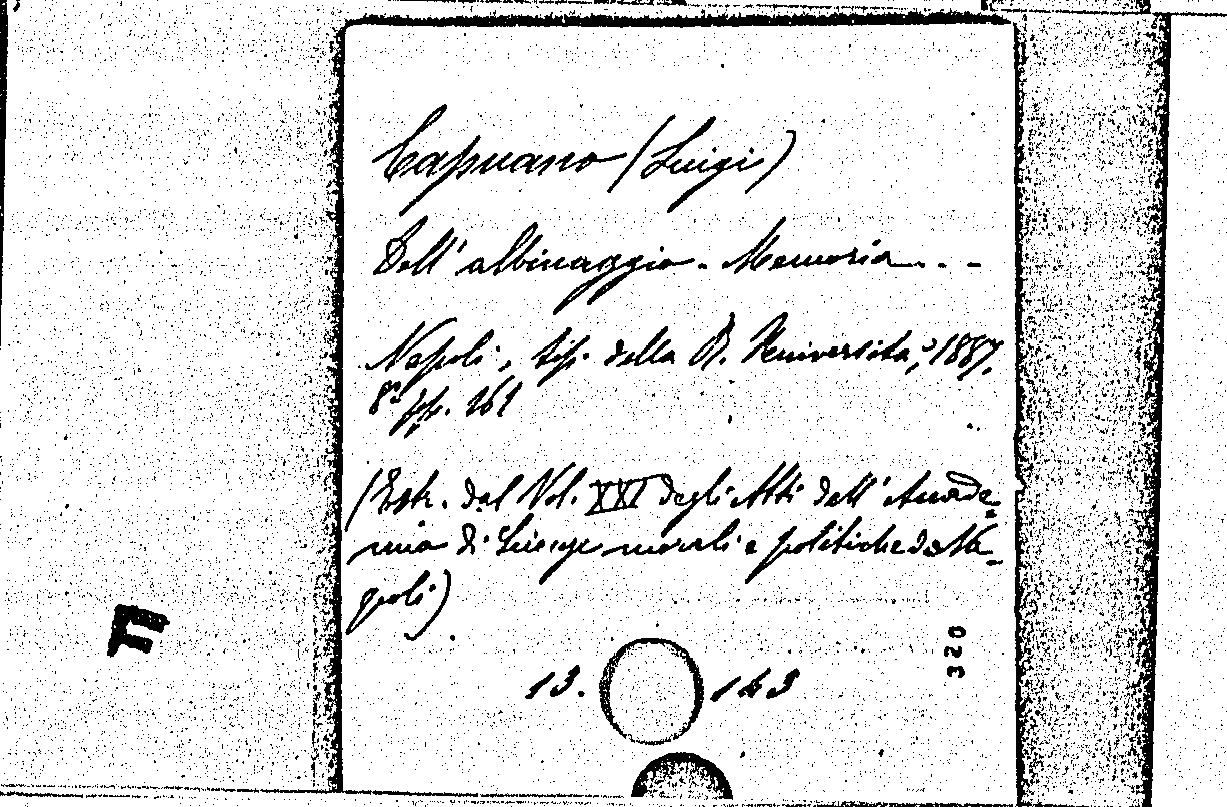 Capuano (Luigi)
Dell'albinaggio - Memoria . . .
Napoli, tip. della R. Università, 1887.
8° pp. 161
(Estr. dal Vol. XXI degli Atti dell'Accade=
mia di Scienze morali e politiche di Na=
poli)
13. 143
320
F